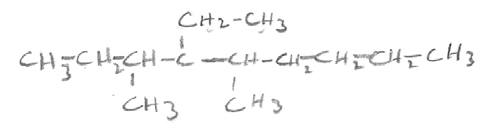 CH2-CH3
CH3-CH2-CH-C-CH-CH2-CH2-CH2-CH3
CH3 CH3